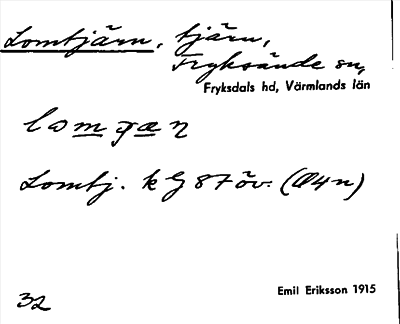 Lomtjärn, tjärn,
Fryksände sn,
Fryksdals hd, Värmlands län
Lomtj. k G 87 öv. (Ö4n)
32
Emil Eriksson 1915